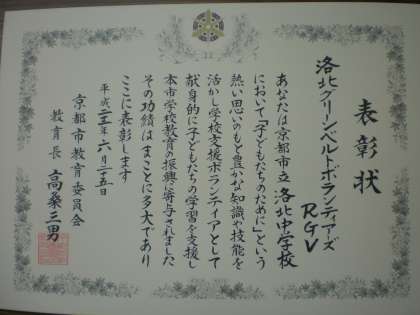 表彰状
洛北グリーンベルトボランティアズ
RGV
あなたは京都市立洛北中学校
において「子どもたちのために」という
熱い思いのもと豊かな知識や技能を
活かし学校支援ボランティアとして
献身的に子どもたちの学習を支援し
本市学校教育の振興に寄与されました
その功績はまことに多大であり
ここに表彰します
平成二三年六月二五日
京都市教育委員会
教育長 高桑三男